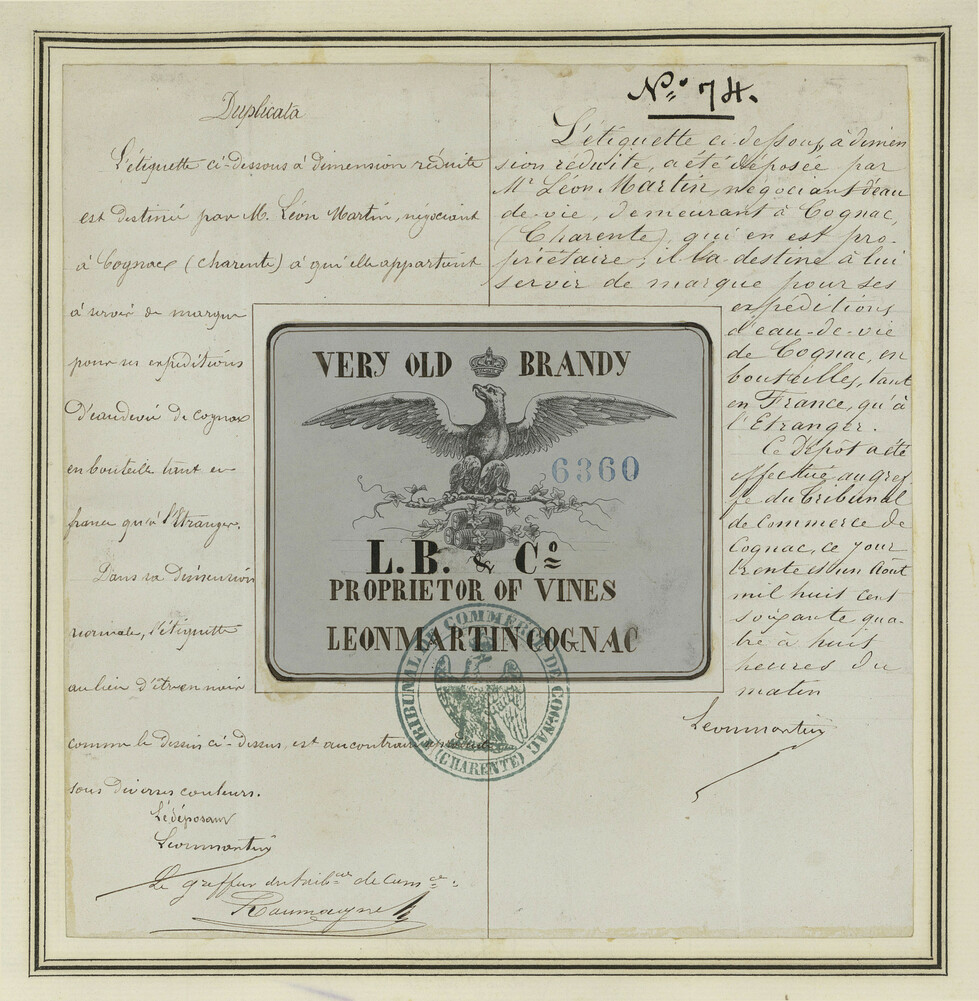 Duplicata
L'étiquette ci-dessous à dimension réduite
est destinée par M. Léon Martin, négociant
à Cognac (Charente) à qui elle appartient
à servir de marque
pour ses expéditions
d'eau de vie de Cognac
en bouteille tant en
france qu'à l'Etranger.
Dans sa dimension
normale, l'étiquette
au lieu d'être en noir
comme le dessin ci-dessus, est au contraire
sous diverses couleurs.
Le déposant
Leonmartin
Le greffier du trib.al de Com.ce
N° 74.
L'étiquette ci-dessous, à dimen
sion réduite, a été déposée par
Mr Léon Martin, négociant d'eau
de-vie, demeurant à Cognac,
(Charente), qui en est pro-
priétaire; il la destine à lui
servir de marque pour ses
expéditions
d'eau-de-vie
de Cognac, en
bouteilles, tant
en France, qu'à
l'Etranger.
Ce Dépôt a été
effectué au gref
fe du Tribunal
de Commerce de
Cognac, ce jour
trente et un Août
mil huit cent
soixante qua-
tre à huit
heures du
matin
Leonmartin
VERY OLD BRANDY
6360
L.B. & Co
PROPRIETOR OF VINES
LEONMARTIN COGNAC
TRIBUNAL DE COMMERCE DE COGNAC
(CHARENTE)